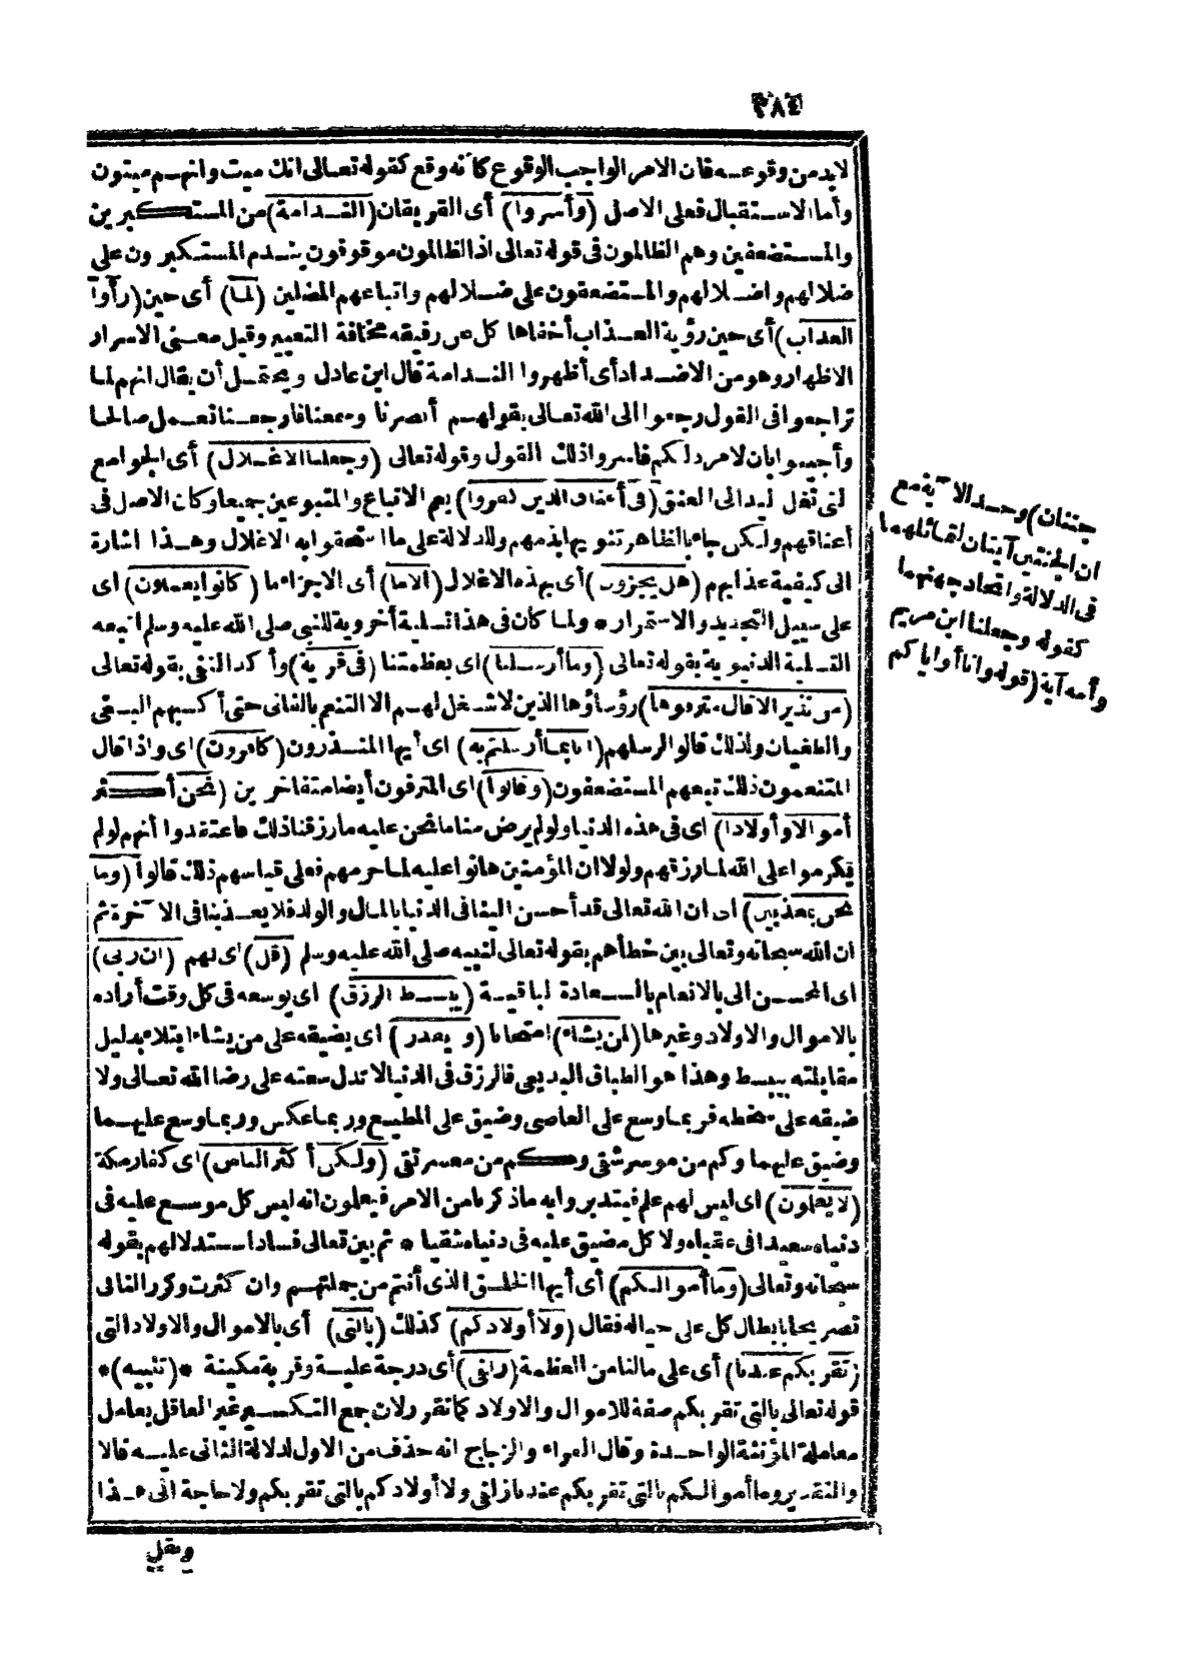 ٢٨٤
لابد من وقوعه فان الامر الواجب الوقوع كأنه وقع كقوله تعالى انك ميت وانهم ميتون
وأما الاستقبال فعلى الاصل (وأسروا) أى الفريقان (الندامة) من المستكبرين
والمستضعفين وهم الظالمون فى قوله تعالى اذ الظالمون موقوفون يندم المستكبرون على
ضلالهم واضلالهم والمستضعفون على ضلالهم واتباعهم المضلين (لما) أى حين (رأوا
العذاب) أى حين رؤية العذاب أخفاها كل عن رفيقه مخافة التعيير وقيل معنى الاسرار
الاظهار وهو من الاضداد أى أظهروا الندامة قال ابن عادل ويحتمل أن يقال انهم لما
تراجعوا فى القول رجعوا الى الله تعالى بقولهم أبصرنا وسمعنا فارجعنا نعمل صالحا
وأجيبوا بان لا مرد لكم فاسروا ذلك القول وقوله تعالى (وجعلنا الاغلال) أى الجوامع
التى تغل اليد الى العنق (فى أعناق الذين كفروا) يعم الاتباع والمتبوعين جميعا وكان الاصل فى
أعناقهم ولكن جاء بالظاهر تنويها بذمهم وللدلالة على ما استحقوا به الاغلال وهذا اشارة
الى كيفية عذابهم (هل يجزون) أى بهذه الاغلال (الاما) أى الاجزاء ما (كانوا يعملون) اى
على سبيل التجديد والاستمرار * ولما كان فى هذا تسلية أخروية للنبى صلى الله عليه وسلم اتبعه
التسلية الدنيوية بقوله تعالى (وما أرسلنا) اى بعظمتنا (فى قرية) وأكد النفى بقوله تعالى
(من نذير الا قال مترفوها) رؤساؤها الذين لا شغل لهم الا التنعم بالفانى حتى أكسبهم البغى
والطغيان ولذلك قالوا لرسلهم (انا بما أرسلتم به) اى أيها المنذرون (كافرون) اى واذا قال
المتنعمون ذلك تبعهم المستضعفون (وقالوا) اى المترفون أيضا متفاخرين (نحن أكثر
أموالا وأولادا) اى فى هذه الدنيا ولو لم يرض منا ما نحن عليه ما رزقنا ذلك فاعتقدوا أنهم لو لم
يكرموا على الله لما رزقهم ولولا ان المؤمنين هانوا عليه لما حرمهم فعلى قياسهم ذلك قالوا (وما
نحن بمعذبين) اى ان الله تعالى قد أحسن الينا فى الدنيا بالمال والولد فلا يعذبنا فى الآخرة ثم
ان الله سبحانه وتعالى بين خطأهم بقوله تعالى لنبيه صلى الله عليه وسلم (قل) اى لهم (ان ربى)
اى المحسن الى بالانعام بالسعادة الباقية (يبسط الرزق) اى يوسعه فى كل وقت أراده
بالاموال والاولاد وغيرها (لمن يشاء) امتحانا (ويقدر) اى يضيقه على من يشاء ابتلاء بدليل
مقابلته بيبسط وهذا هو الطباق البديعى فالرزق فى الدنيا لا تدل سعته على رضا الله تعالى ولا
ضيقه على سخطه فربما وسع على العاصى وضيق على المطيع وربما عكس وربما وسع عليهما
وضيق عليهما وكم من موسر شقى وكم من معسر تقى (ولكن أكثر الناس) اى كفار مكة
(لا يعلمون) اى ليس لهم علم فيتدبروا به ما ذكرنا من الامر فيعلمون انه ليس كل موسع عليه فى
دنياه سعيدا فى عقباه ولا كل مضيق عليه فى دنياه شقيا * ثم بين تعالى فساد استدلالهم بقوله
سبحانه وتعالى (وما أموالكم) أى أيها الخلق الذى أنتم من جملتهم وان كثرت وكرر النافى
تصريحا بابطال كل على حياله فقال (ولا أولادكم) كذلك (بالتى) أى بالاموال والاولاد التى
(تقربكم عندنا) أى على ما لنا من العظمة (زلفى) أى درجة علية وقربة مكينة *(تنبيه)*
قوله تعالى بالتى تقربكم صفة للاموال والاولاد كما تقرر لان جمع التكسير غير العاقل يعامل
معاملة المؤنثة الواحدة وقال الفراء والزجاج انه حذف من الاول لدلالة الثانى عليه قالا
والتقدير وما أموالكم بالتى تقربكم عندنا زلفى ولا أولادكم بالتى تقربكم ولا حاجة الى هذا
ونقل
جنتان) وحد الآية مع
ان الجنتين آيتان لتماثلهما
فى الدلالة واتحاد جهتهما
كقوله وجعلنا ابن مريم
وأمه آية (قوله وانا أو اياكم